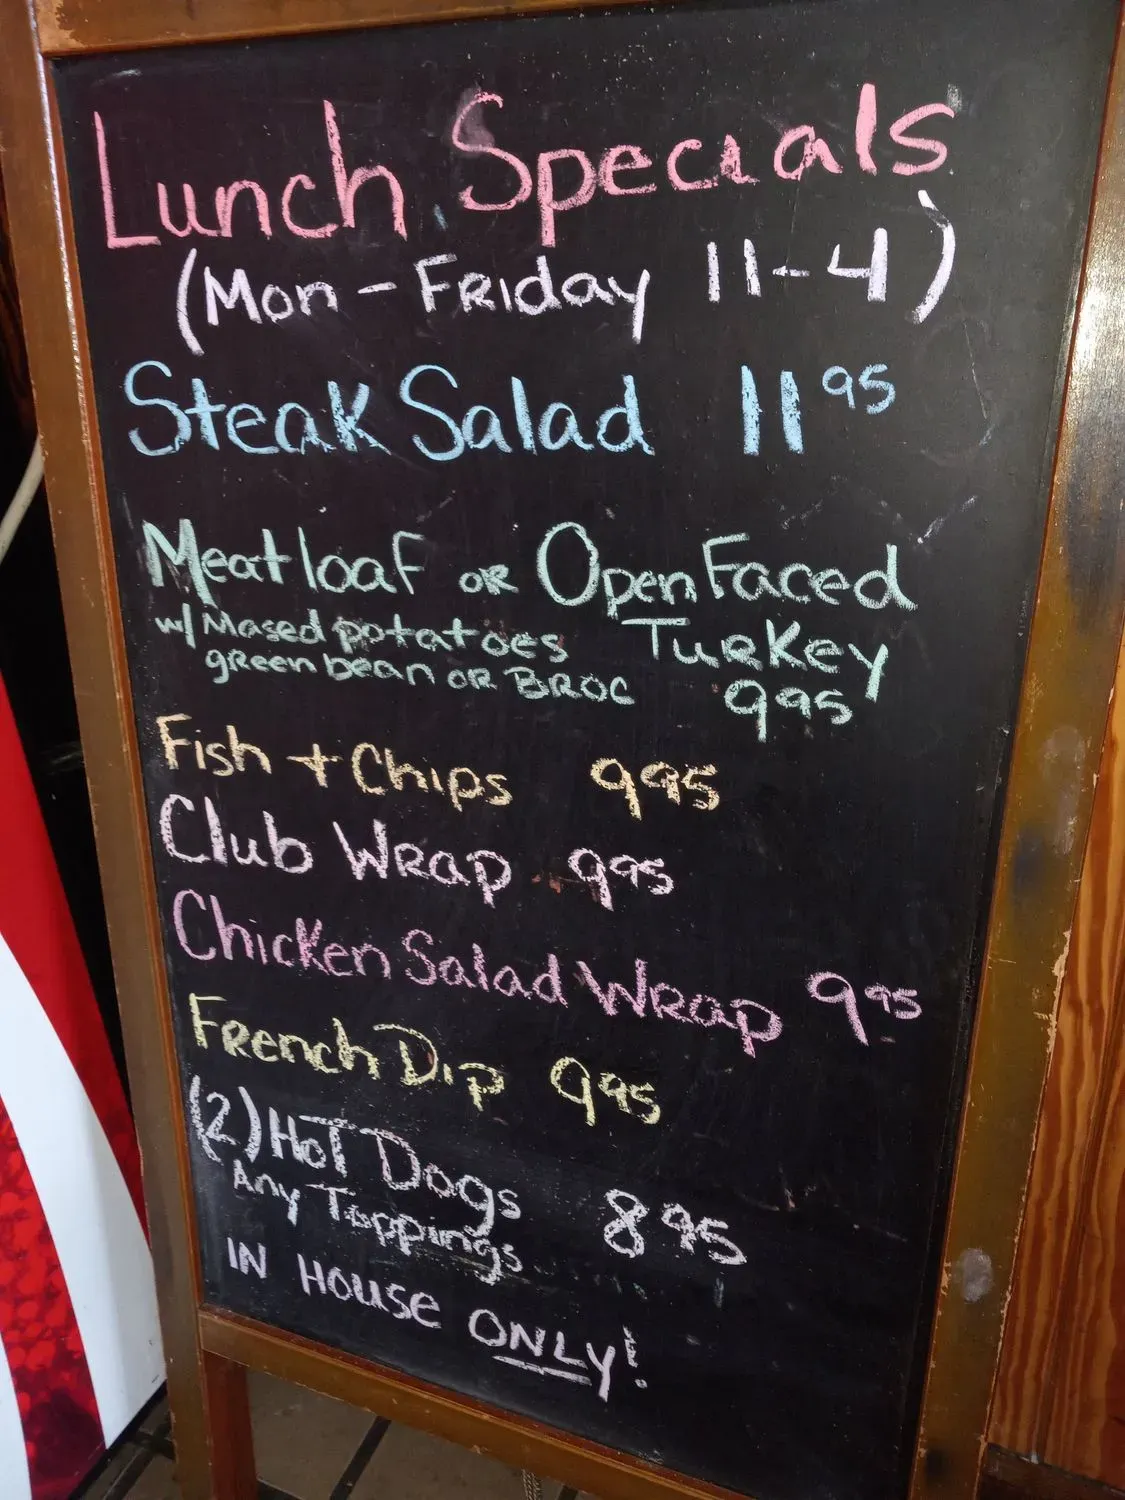 Lunch Specials
(Mon - Friday 11-4)
Steak Salad 11 95
Meatloaf or Open Faced
w/ Mased potatoes Turkey
green bean or Broc 9 95
Fish + Chips 9 95
Club Wrap 9 95
Chicken Salad Wrap 9 95
French Dip 9 95
(2) Hot Dogs 8 95
Any Toppings
IN HOUSE ONLY!